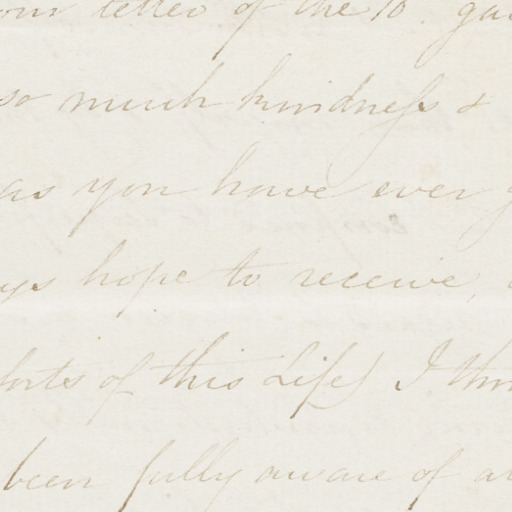 letter of the 10.
so much kindness &
as you have ever
hope to receive,
of this Life) I
been fully aware of